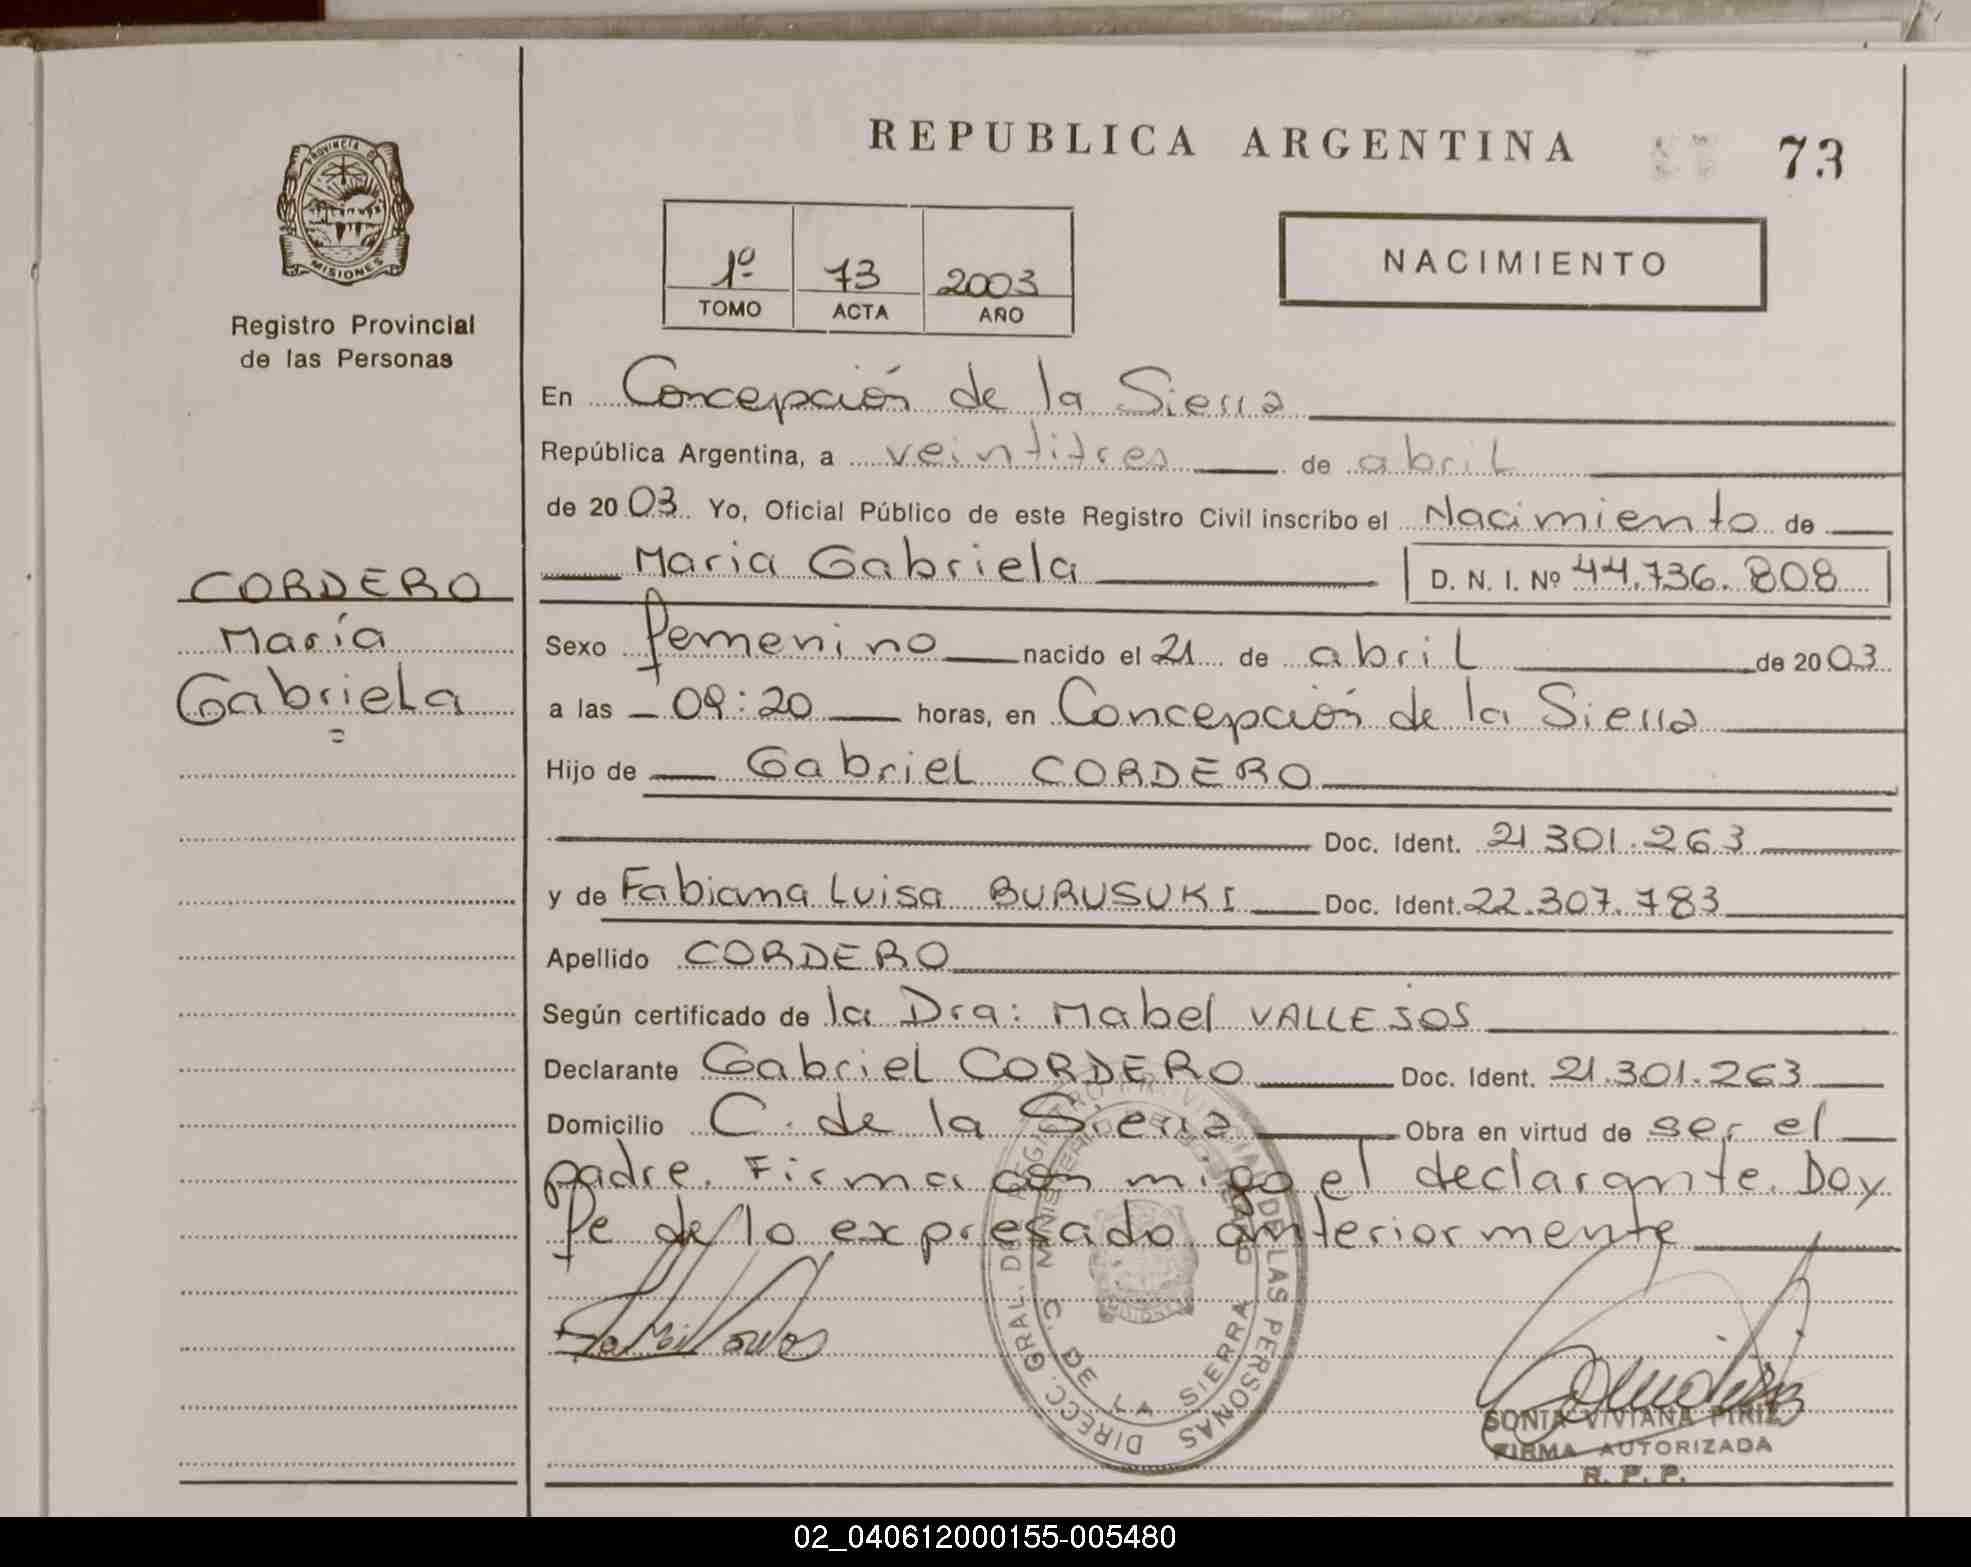 REPUBLICA ARGENTINA 73
PROVINCIA DE
MISIONES
Registro Provincial
de las Personas
1º 73 2003
TOMO ACTA AÑO
NACIMIENTO
En Concepción de la Sierra
República Argentina, a veintitres de abril
de 2003. Yo, Oficial Público de este Registro Civil inscribo el Nacimiento de
Maria Gabriela D. N. I. Nº 44.736.808
CORDERO
María
Gabriela
Sexo femenino nacido el 21 de abril de 2003
a las 09:20 horas, en Concepción de la Sierra
Hijo de Gabriel CORDERO
Doc. Ident. 21.301.263
y de Fabiana Luisa BURUSUKI Doc. Ident. 22.307.783
Apellido CORDERO
Según certificado de la Dra: Mabel VALLEJOS
Declarante Gabriel CORDERO Doc. Ident. 21.301.263
Domicilio C. de la Sierra Obra en virtud de ser el
padre. Firma con migo el declarante. Doy
fe de lo expresado anteriormente
DIRECC. GRAL. DEL REGISTRO PROVINCIAL DE LAS PERSONAS
C. DE LA SIERRA
SONIA VIVIANA PIRIZ
FIRMA AUTORIZADA
R. P. P.
02_040612000155-005480